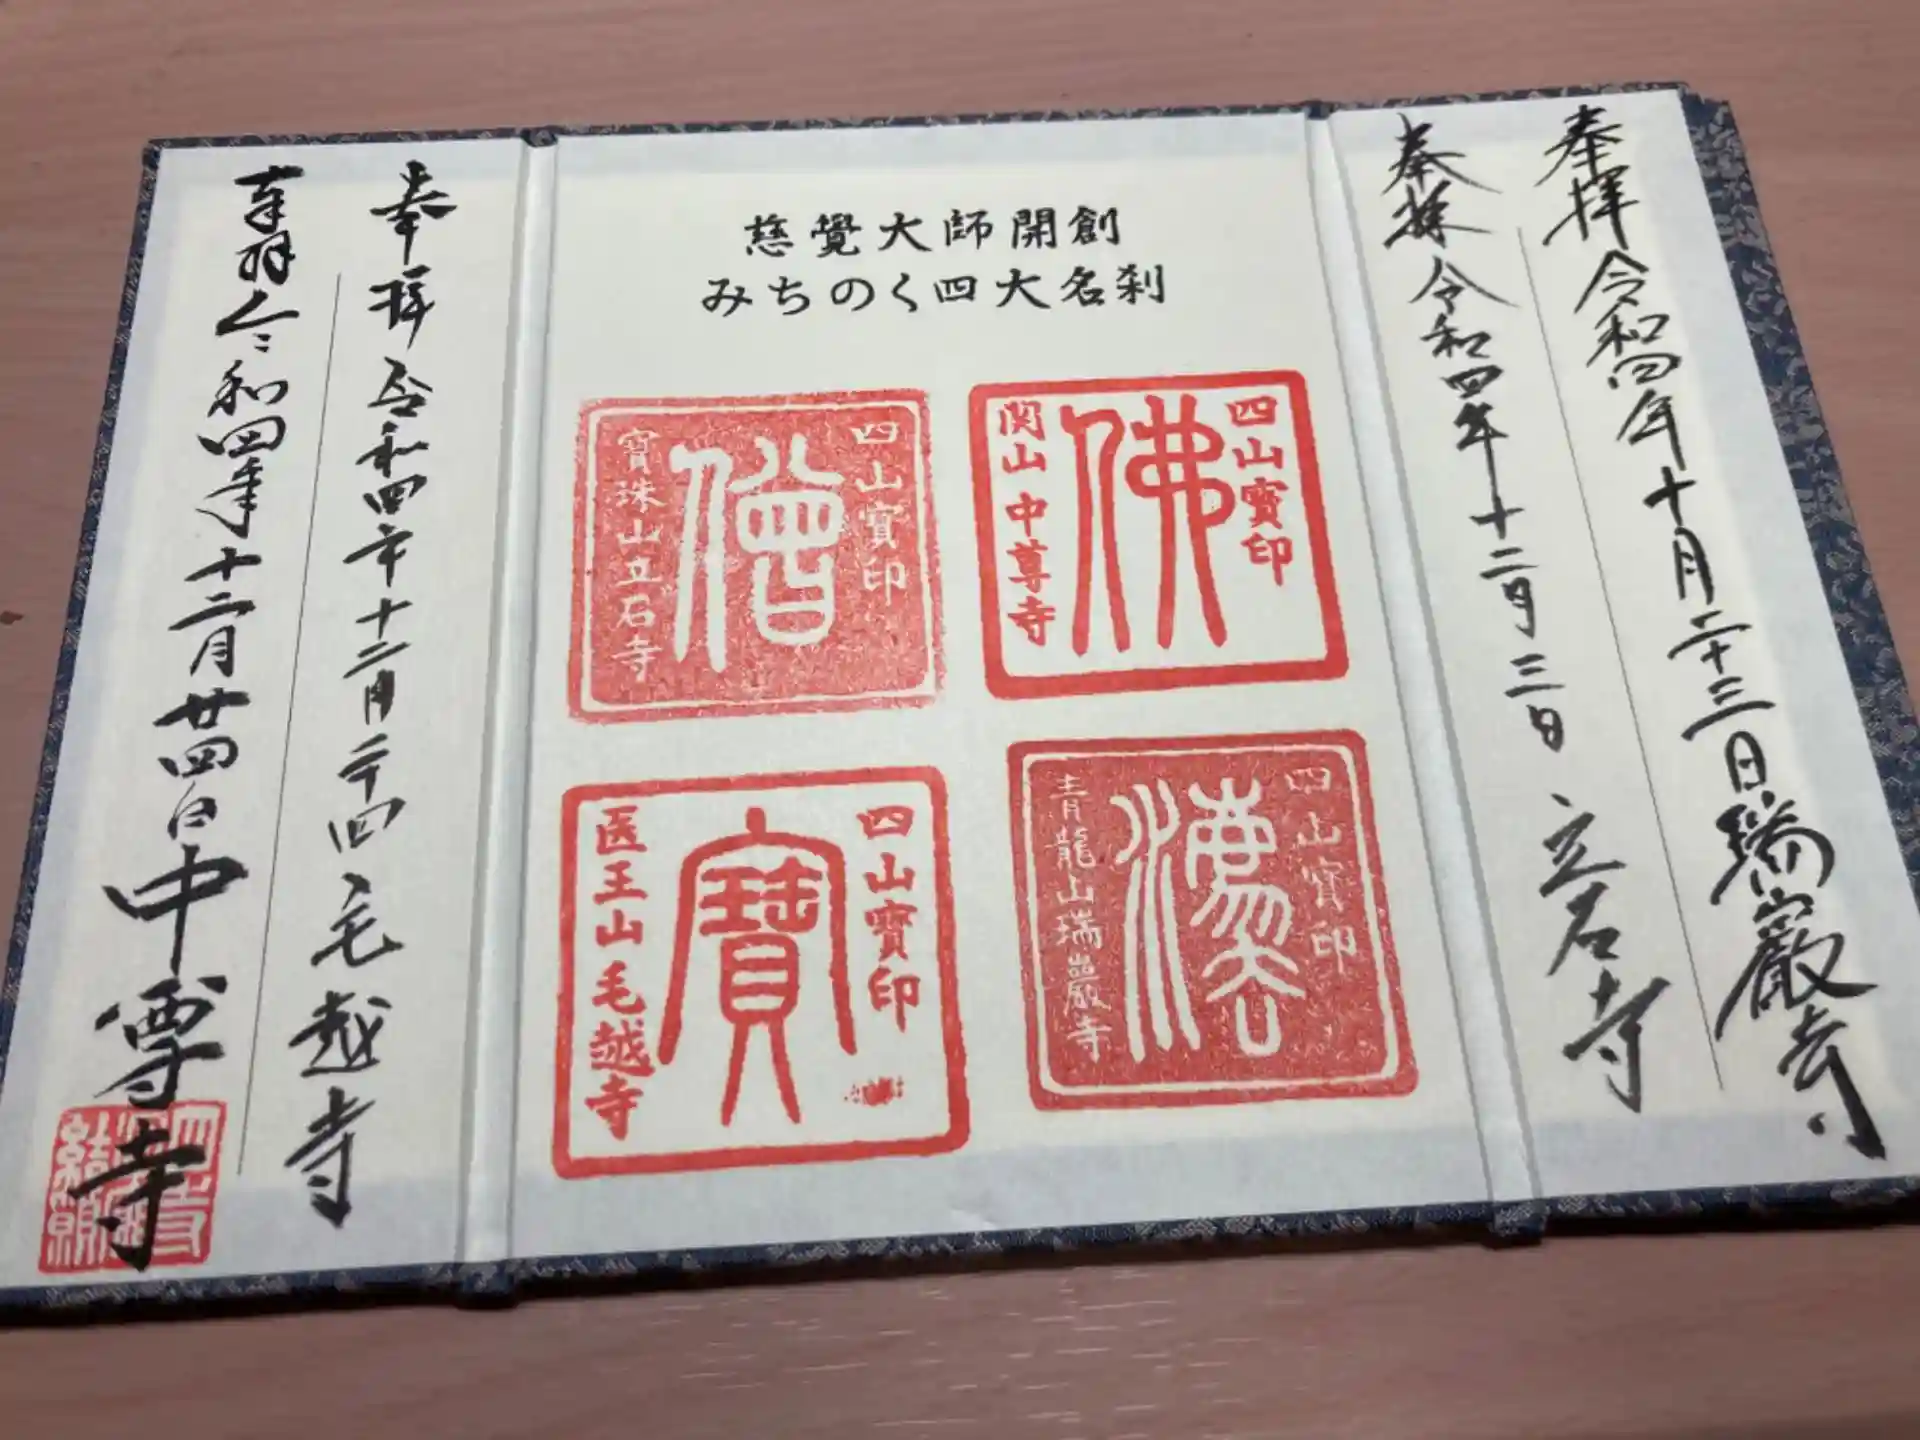 慈覺大師開創
みちのく四大名刹
奉拝 令和四年十月二十三日 瑞巖寺
奉拝 令和四年十二月三日 立石寺
四山寶印
佛
関山 中尊寺
四山寶印
僧
寳珠山立石寺
四山寶印
法
青龍山瑞巖寺
四山寶印
寶
医王山毛越寺
奉拝 令和四年十二月二十四 毛越寺
奉拝 令和四年十二月廿四日 中尊寺
四寺
結願